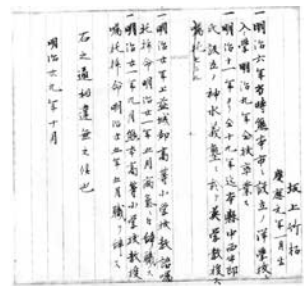 坂上竹松
慶應元年一月生
一明治六年時熊本市ニ設立ノ洋学校ニ
入学明治九年全校卒業ス
一明治十一年ヨリ仝十九年迄本縣中西牛郎
氏設立ノ神水義塾ニ於テ英学教授ヲ
嘱托セラル
一明治廿年上益城郡高等小学校教諭嘱
托拝命明治廿一年五月満期ニ付辞職ス
一明治廿一年九月熊本高等小学校教授
嘱托拝命明治廿五年五月職ヲ辞ス
右之通相違無之候也
明治廿九年十月